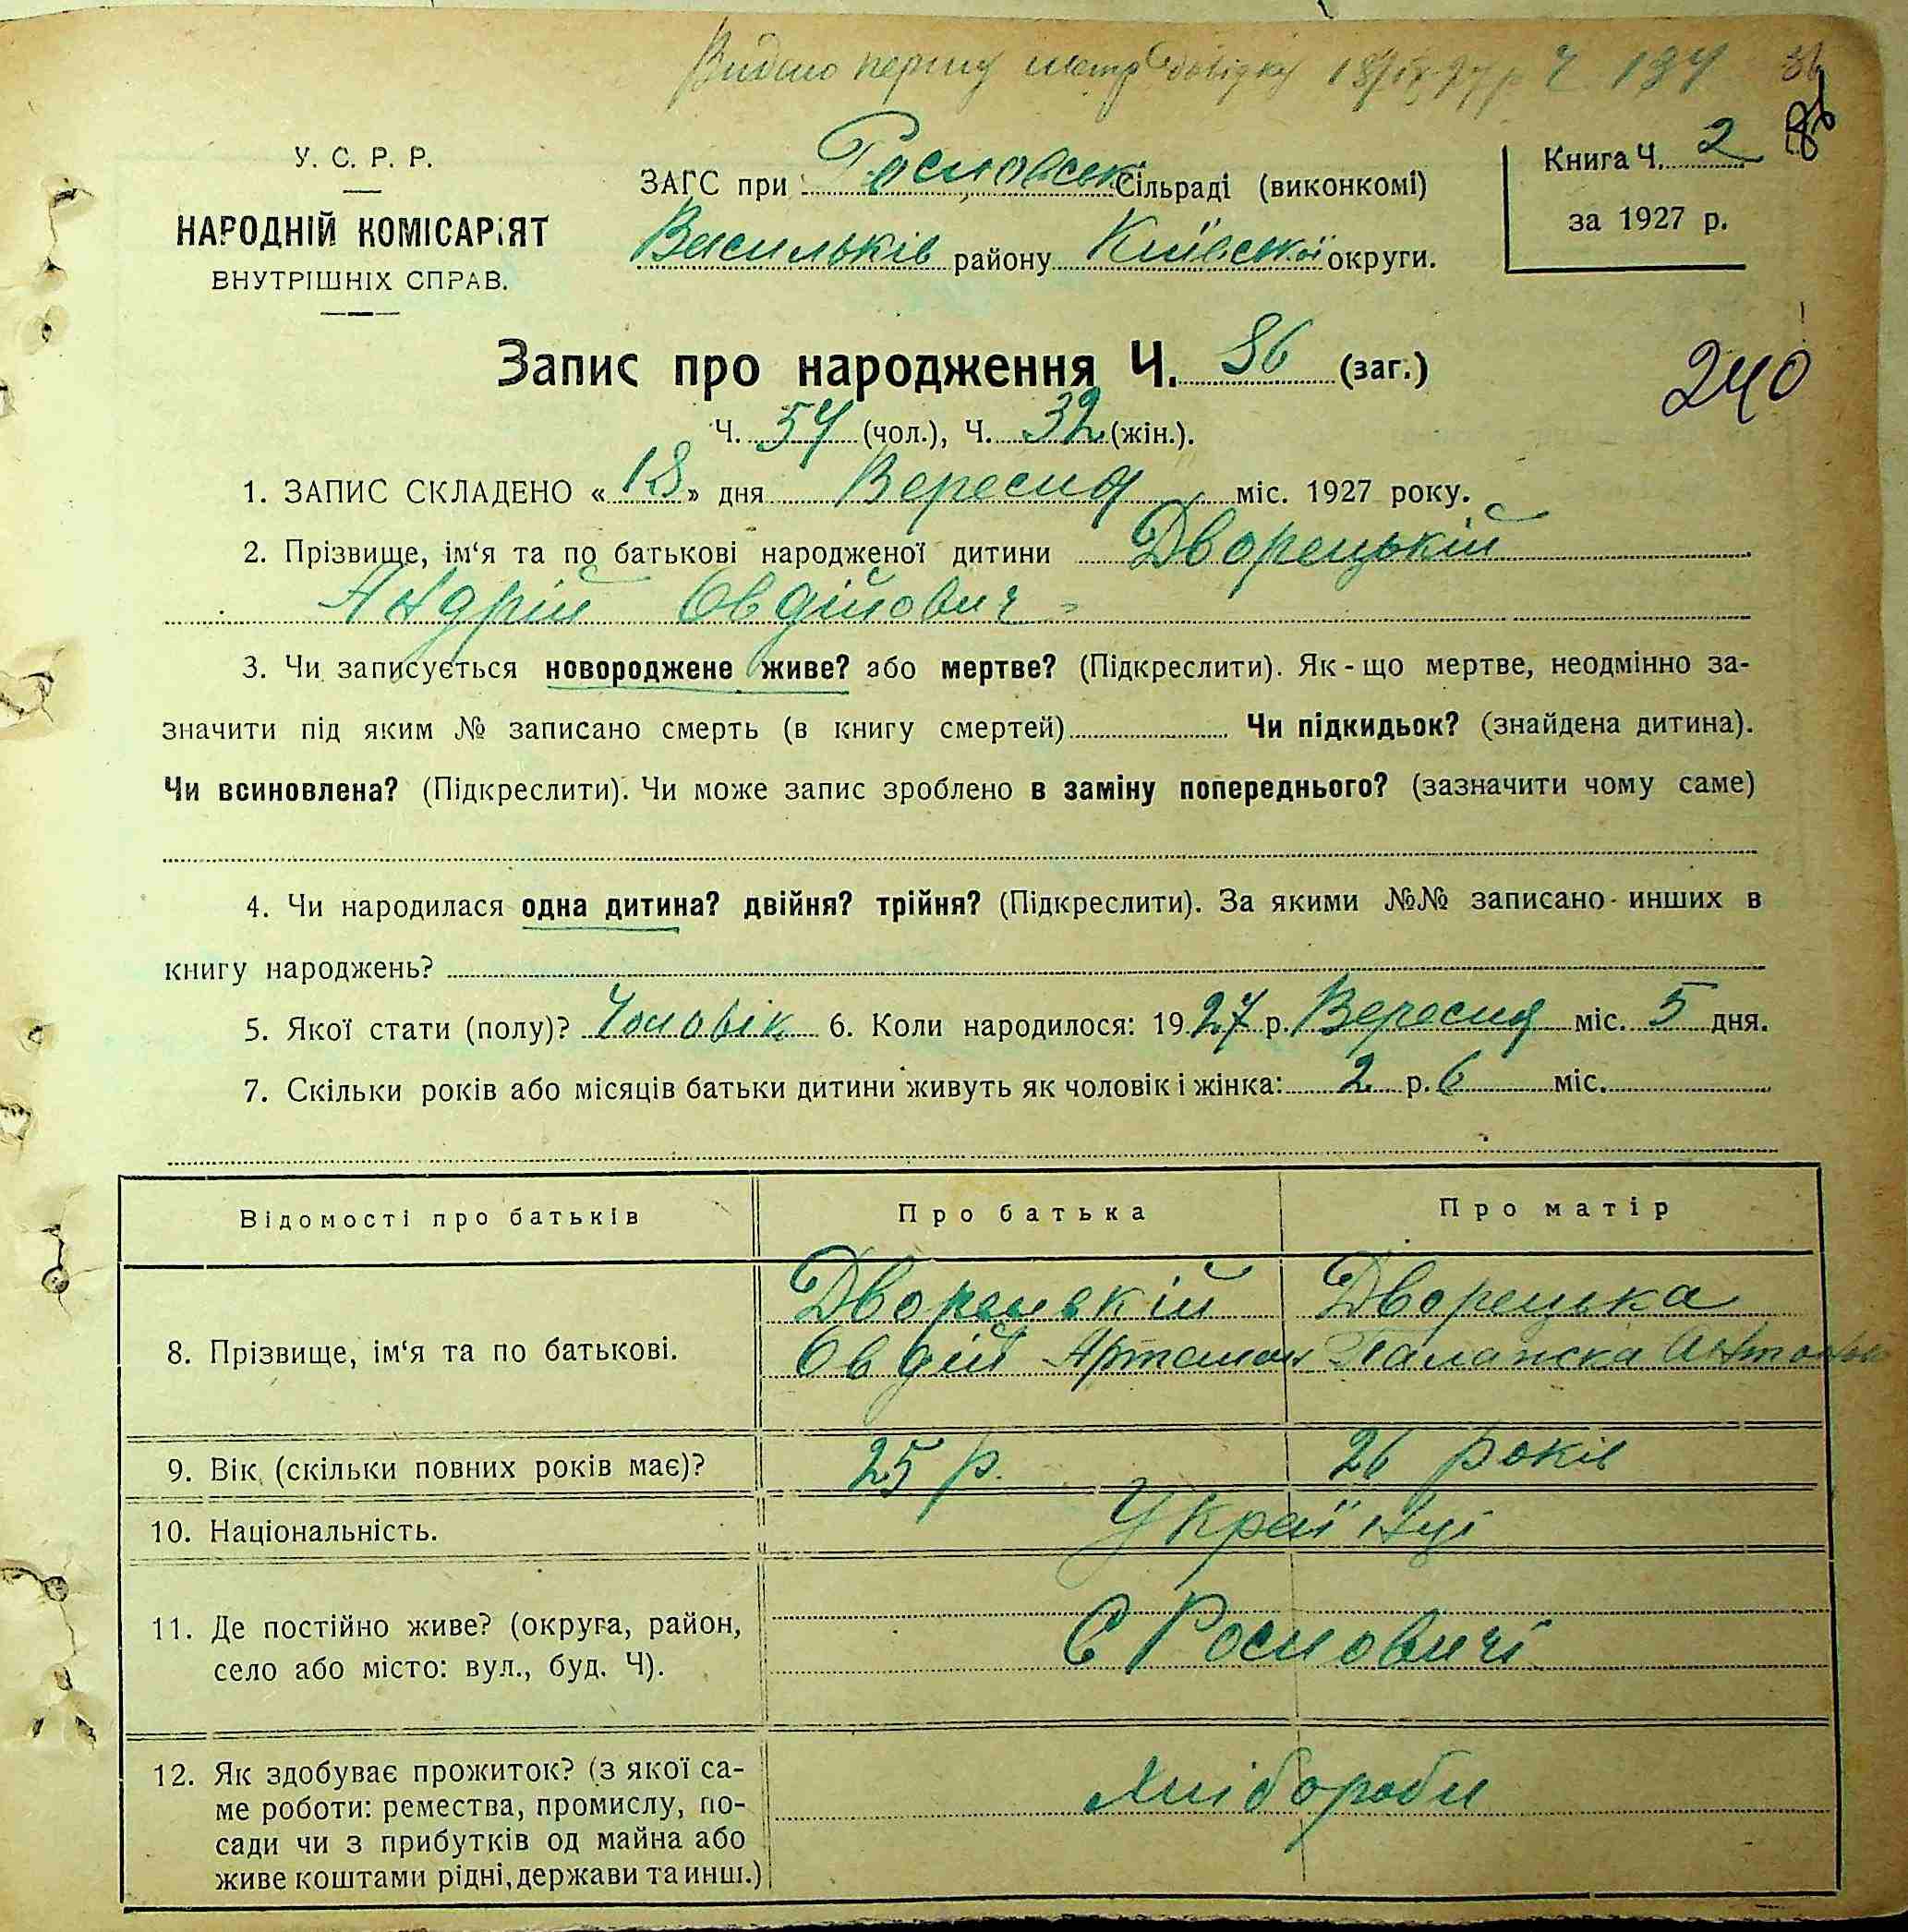 Видано першу метр довідку 18/IX-27 р Ч 134 36
У. С. Р. Р.
НАРОДНІЙ КОМІСАРІЯТ
ВНУТРІШНІХ СПРАВ.
ЗАГС при Росновськ Сільраді (виконкомі)
Васильків району Київської округи.
Книга Ч. 2
за 1927 р.
Запис про народження Ч. 86 (заг.)
240
Ч. 54 (чол.), Ч. 32 (жін.).
1. ЗАПИС СКЛАДЕНО «18» дня Вересня міс. 1927 року.
2. Прізвище, ім‘я та по батькові народженої дитини Дворецькій
Андрій Овдійович
3. Чи записується новороджене живе? або мертве? (Підкреслити). Як-що мертве, неодмінно за-
значити під яким № записано смерть (в книгу смертей) Чи підкидьок? (знайдена дитина).
Чи всиновлена? (Підкреслити). Чи може запис зроблено в заміну попереднього? (зазначити чому саме)
4. Чи народилася одна дитина? двійня? трійня? (Підкреслити). За якими №№ записано инших в
книгу народжень?
5. Якої стати (полу)? Чоловік 6. Коли народилося: 1927 р. Вересня міс. 5 дня.
7. Скільки років або місяців батьки дитини живуть як чоловік і жінка: 2 р. 6 міс.
Відомості про батьків Про батька Про матір
8. Прізвище, ім‘я та по батькові.
Дворецькій Дворецька
Овдій Артамон Палажка Антонів
9. Вік (скільки повних років має)? 25 р. 26 років
10. Національність. Українці
11. Де постійно живе? (округа, район,
село або місто: вул., буд. Ч).
С Росновичі
12. Як здобуває прожиток? (з якої са-
ме роботи: ремества, промислу, по-
сади чи з прибутків од майна або
живе коштами рідні, держави та инш.)
Хлібороби